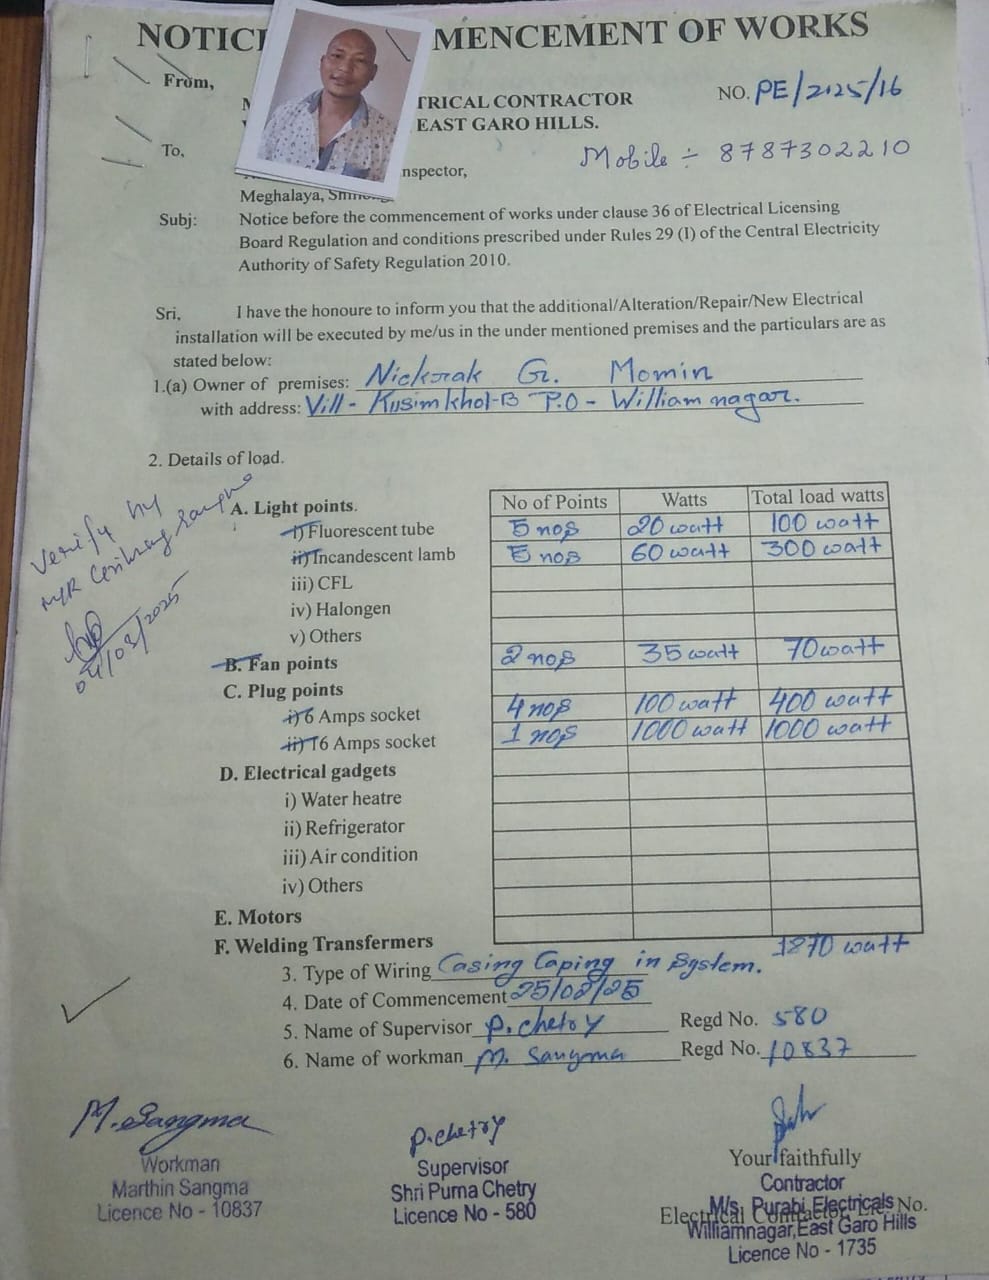 NOTIC MENCEMENT OF WORKS
From,
TRICAL CONTRACTOR
NO. PE/2025/16
EAST GARO HILLS.
To,
Mobile ÷ 8787302210
nspector,
Meghalaya,
Subj: Notice before the commencement of works under clause 36 of Electrical Licensing
Board Regulation and conditions prescribed under Rules 29 (I) of the Central Electricity
Authority of Safety Regulation 2010.
Sri, I have the honoure to inform you that the additional/Alteration/Repair/New Electrical
installation will be executed by me/us in the under mentioned premises and the particulars are as
stated below:
1.(a) Owner of premises: Nickrak G. Momin
with address: Vill- Kusimkhol-B P.O - Williamnagar.
2. Details of load.
No of Points Watts Total load watts
A. Light points.
i) Fluorescent tube 5 nos 20 watt 100 watt
ii) Incandescent lamb 5 nos 60 watt 300 watt
iii) CFL
iv) Halongen
v) Others
B. Fan points 2 nos 35 watt 70 watt
C. Plug points
i) 6 Amps socket 4 nos 100 watt 400 watt
ii) 16 Amps socket 1 nos 1000 watt 1000 watt
D. Electrical gadgets
i) Water heatre
ii) Refrigerator
iii) Air condition
iv) Others
E. Motors
F. Welding Transfermers
1870 watt
Verify by
Sangma
04/03/2025
3. Type of Wiring Casing Caping in System.
4. Date of Commencement
5. Name of Supervisor P. chetry Regd No. 580
6. Name of workman M. Sangma Regd No. 10837
M. Sangma
Workman
Marthin Sangma
Licence No - 10837
P. chetry
Supervisor
Shri Purna Chetry
Licence No - 580
Your faithfully
Contractor
Electrical Contractor Lic. No.
M/s. Purabi Electricals
Williamnagar,East Garo Hills
Licence No - 1735